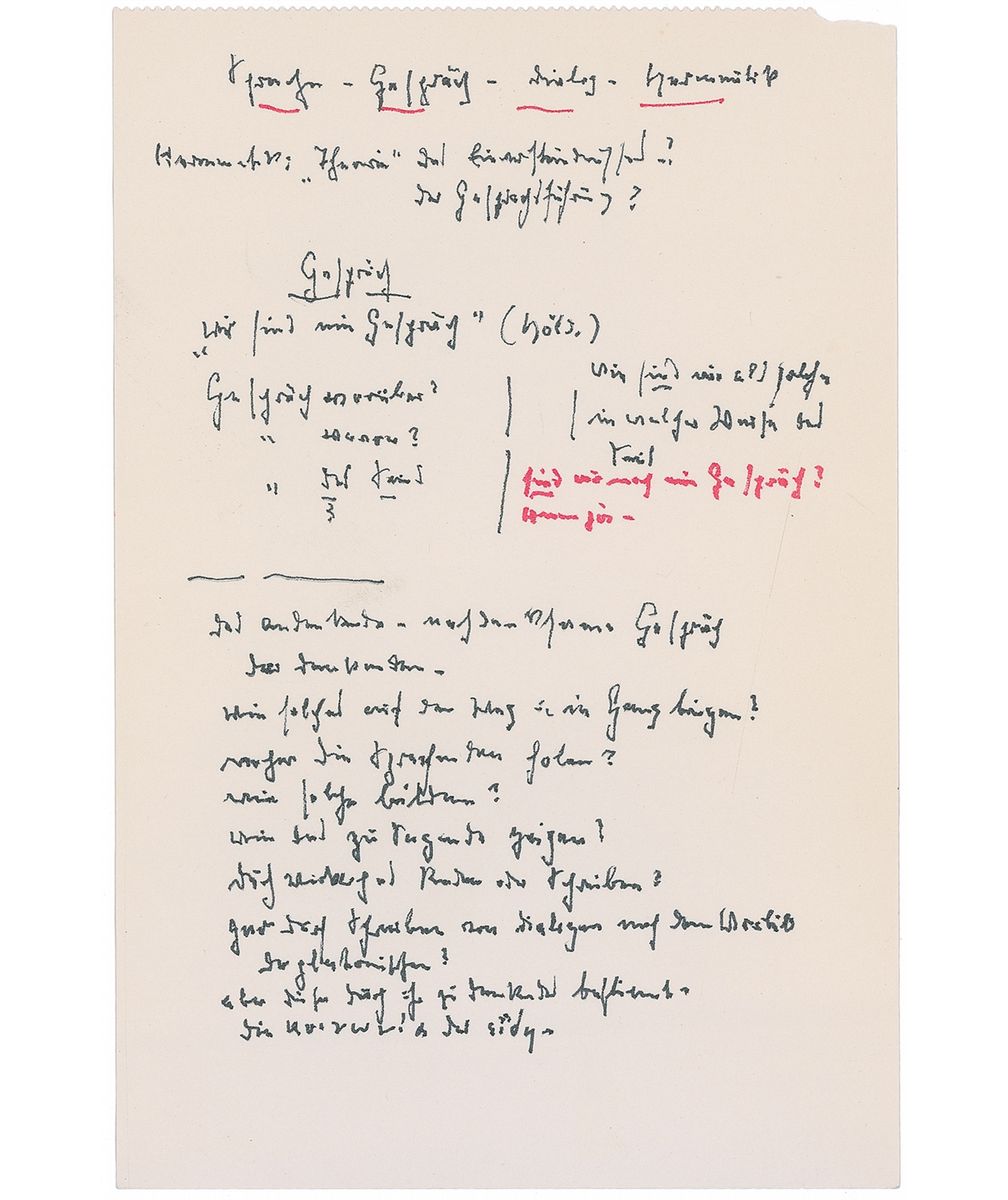 Sprache - Gespräch - Dialog - Hermeneutik
Hermeneutik: „Theorie" des Einverständnisses -?
der Gesprächsführung?
Gespräch
„Wir sind ein Gespräch" (Höld.)
Gespräch worüber?
" wovon?
" des Seins
Wir sind wir als solche
in welcher Weise des
Seins
sind wir noch ein Gespräch?
das andenkende - nach dem Gespräch
des Denkenden -
wie solches auf den Weg u. in Gang bringen?
woher die Sprechenden holen?
wie solche bilden?
wie das zu Sagende zeigen?
durch Reden oder Schreiben?
gar durch Schreiben von Dialogen nach dem Vorbild
der platonischen?
aber diese durch ihr zu Denkendes bestimmt -
die κοινωνία der εἴδη -